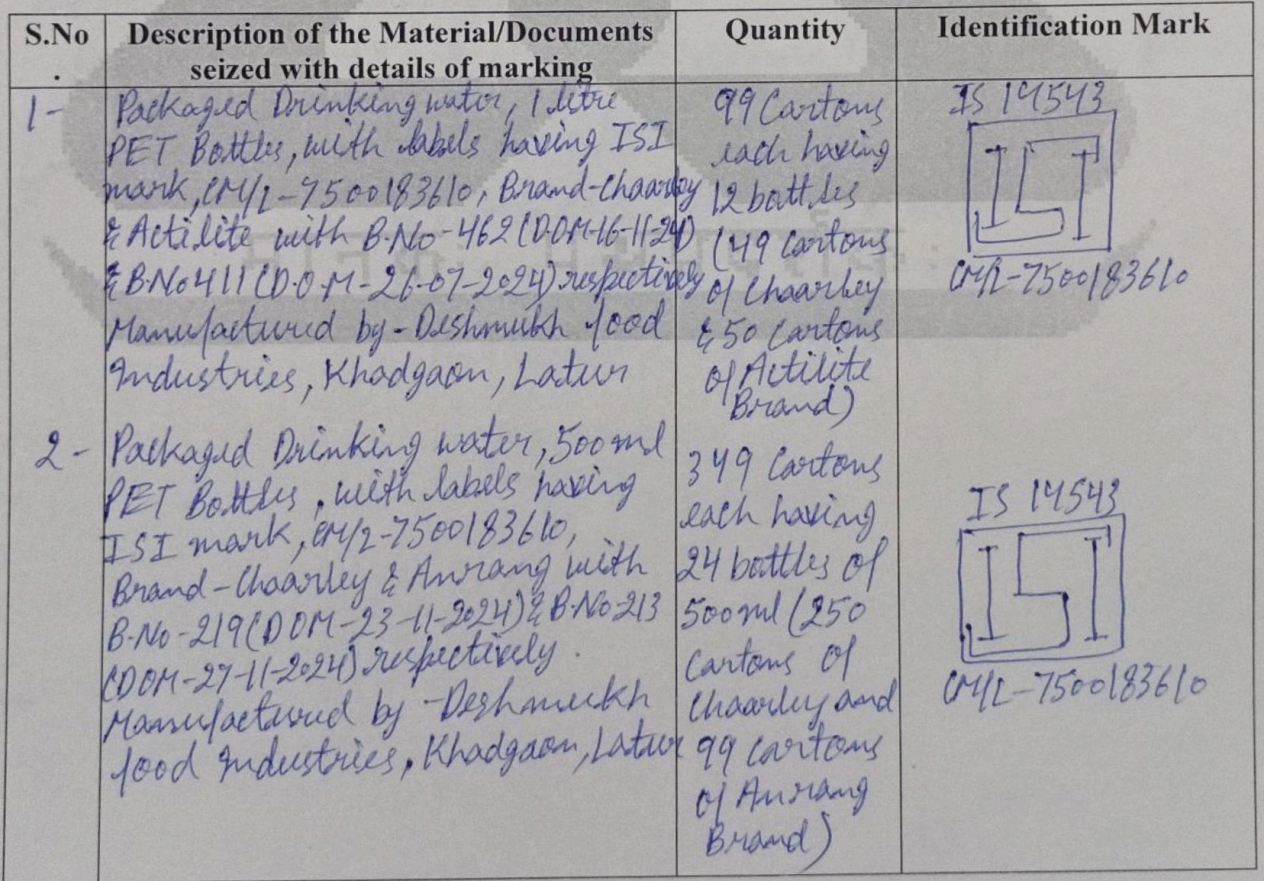 S.No
.
Description of the Material/Documents
seized with details of marking
Quantity
Identification Mark
1-
Packaged Drinking water, 1 litre
PET Bottles, with labels having ISI
mark, CM/L-7500183610, Brand-Chaarley
& Actilite with B.No-462 (D.O.M-16-11-24)
& B.No 411 (D.O.M-26-07-2024) respectively
Manufactured by - Deshmukh food
Industries, Khadgaon, Latur
99 Cartons
each having
12 bottles
(49 Cartons
of Chaarley
& 50 Cartons
of Actilite
Brand)
IS 14543
ISI
CM/L-7500183610
2-
Packaged Drinking water, 500 ml
PET Bottles, with labels having
ISI mark, CM/L-7500183610,
Brand-Chaarley & Anrang with
B.No-219 (DOM-23-11-2024) & B.No-213
(DOM-27-11-2024) respectively.
Manufactured by - Deshmukh
food Industries, Khadgaon, Latur
349 Cartons
each having
24 bottles of
500 ml (250
Cartons of
Chaarley and
99 cartons
of Anrang
Brand)
IS 14543
ISI
CM/L-7500183610